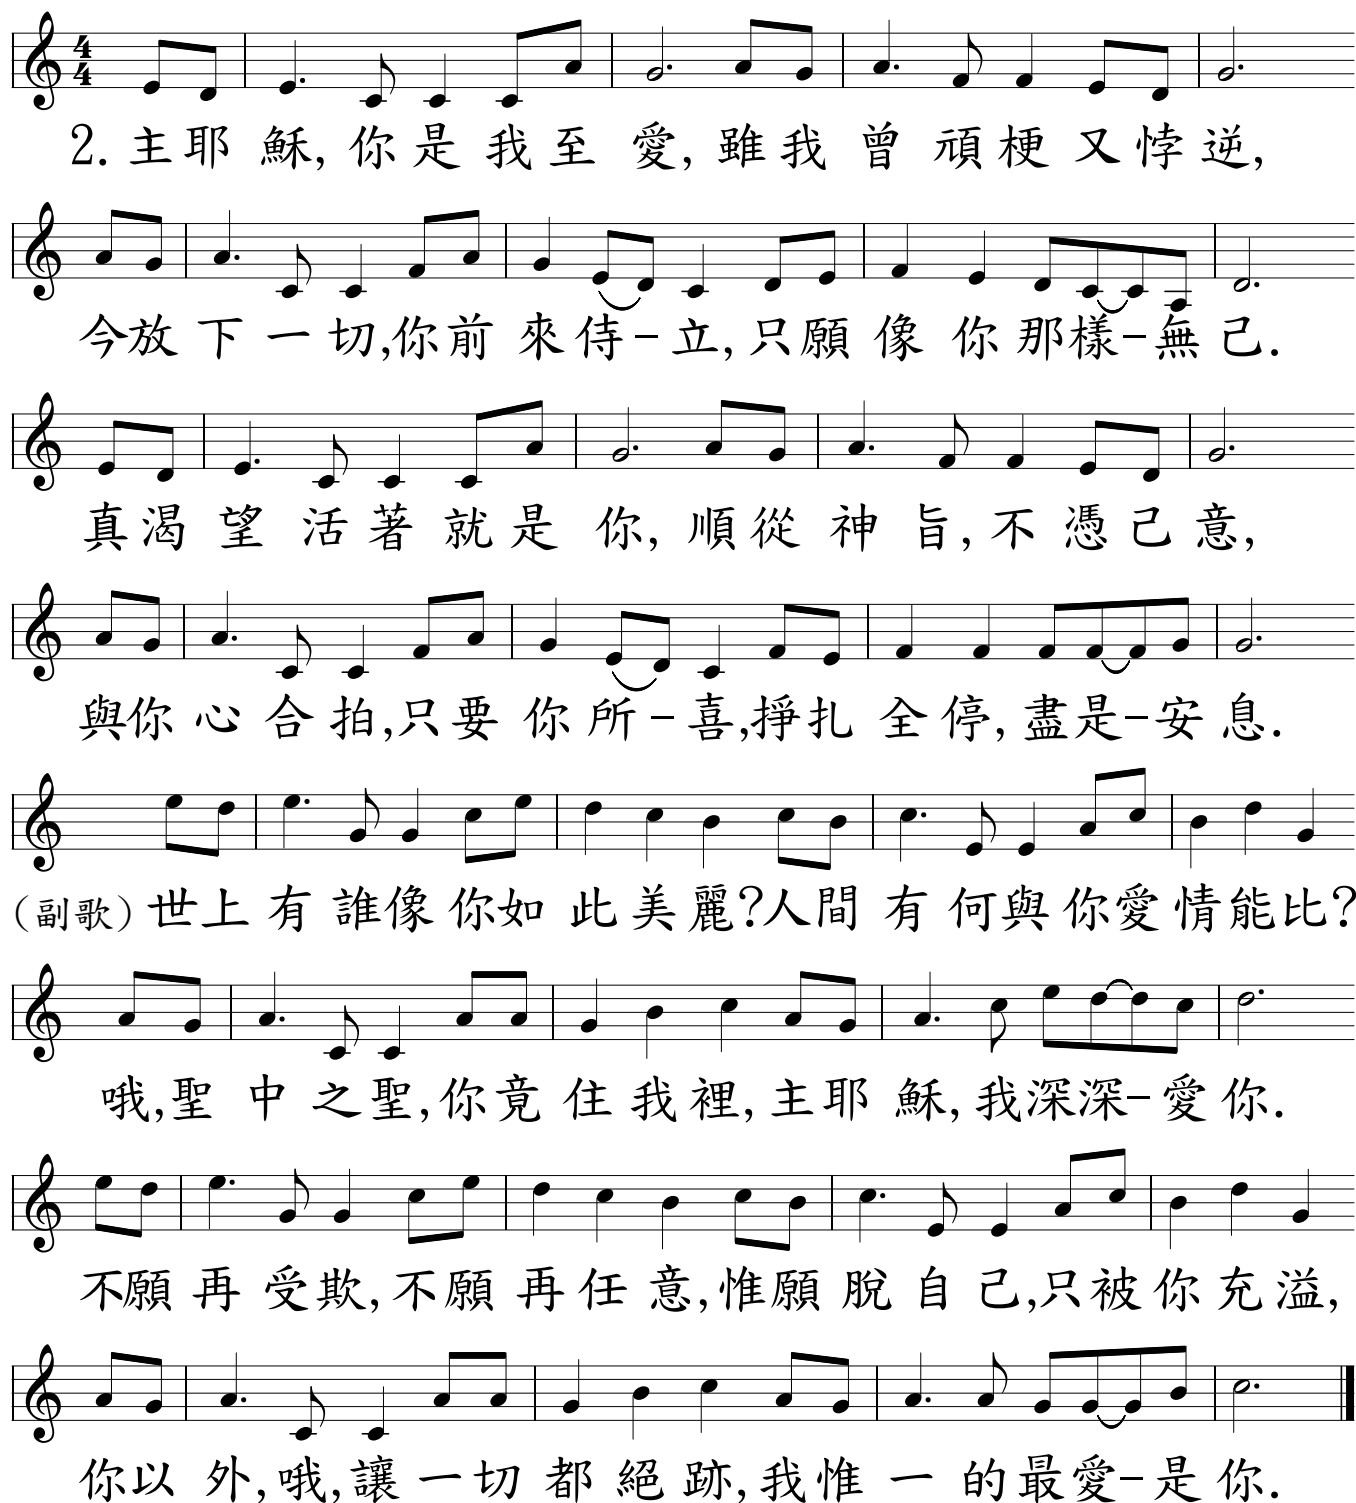 2. 主耶穌, 你是我至愛, 雖我曾頑梗又悖逆,
今放下一切,你前來侍-立, 只願像你那樣-無己.
真渴望活著就是你, 順從神旨, 不憑己意,
與你心合拍,只要你所-喜,掙扎全停, 盡是-安息.
(副歌) 世上有誰像你如此美麗?人間有何與你愛情能比?
哦,聖中之聖,你竟住我裡, 主耶穌, 我深深-愛你.
不願再受欺, 不願再任意,惟願脫自己,只被你充溢,
你以外,哦,讓一切都絕跡,我惟一的最愛-是你.